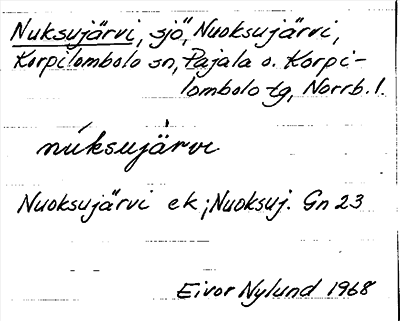 Nuksujärvi, sjö, Nuoksujärvi,
Korpilombolo sn, Pajala o. Korpi-
lombolo tg, Norrb. l.
nuksujärvi
Nuoksujärvi ek; Nuoksuj. Gn 23
Eivor Nylund 1968